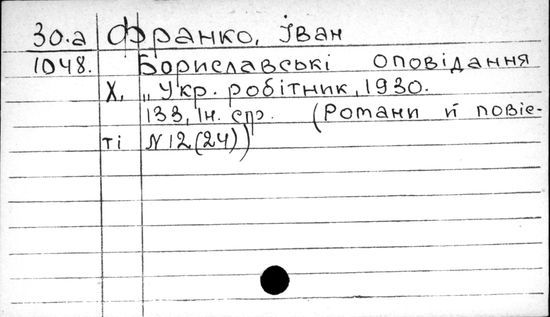 30.а Франко, Іван
1048. Бориславські оповідання
Х, „Укр. робітник, 1930.
133, Ін. стр. (Романи й повіс-
ті N 12(24))